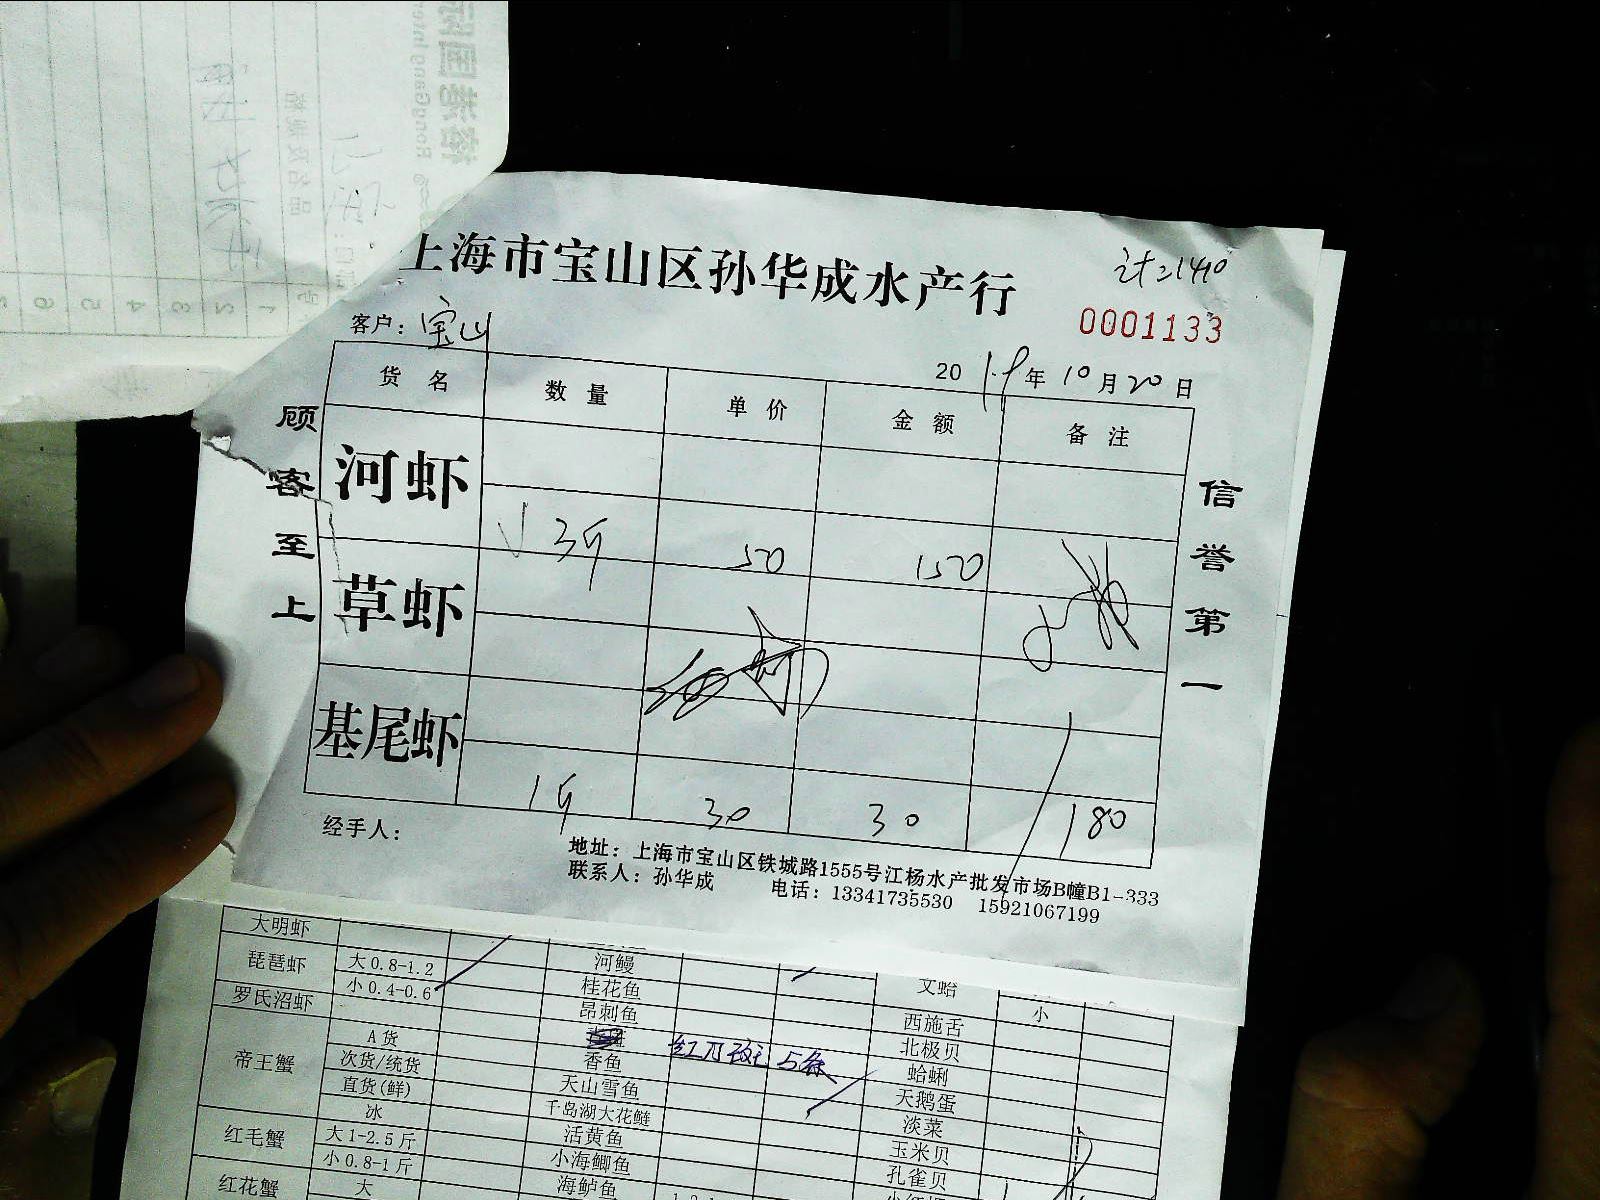 上海市宝山区孙华成水产行
0001133
客户：宝山
2019年10月20日
货名 数量 单价 金额 备注
河虾
3斤 50 150
草虾
基尾虾
1斤 30 30 180
顾客至上
信誉第一
经手人：
地址：上海市宝山区铁城路1555号江杨水产批发市场B幢B1-333
联系人：孙华成 电话：13341735530 15921067199
大明虾
琵琶虾 大0.8-1.2 河鳗 文蛤
小0.4-0.6 桂花鱼 小
罗氏沼虾 昂刺鱼 西施舌
帝王蟹 A货 北极贝
次货/统货 香鱼 蛤蜊
直货(鲜) 天山雪鱼 天鹅蛋
冰 千岛湖大花鲢 淡菜
红毛蟹 大1-2.5斤 活黄鱼 玉米贝
小0.8-1斤 小海鲫鱼 孔雀贝
红花蟹 大 海鲈鱼
5条
RongGang Inter
1
2
3
4
5
6